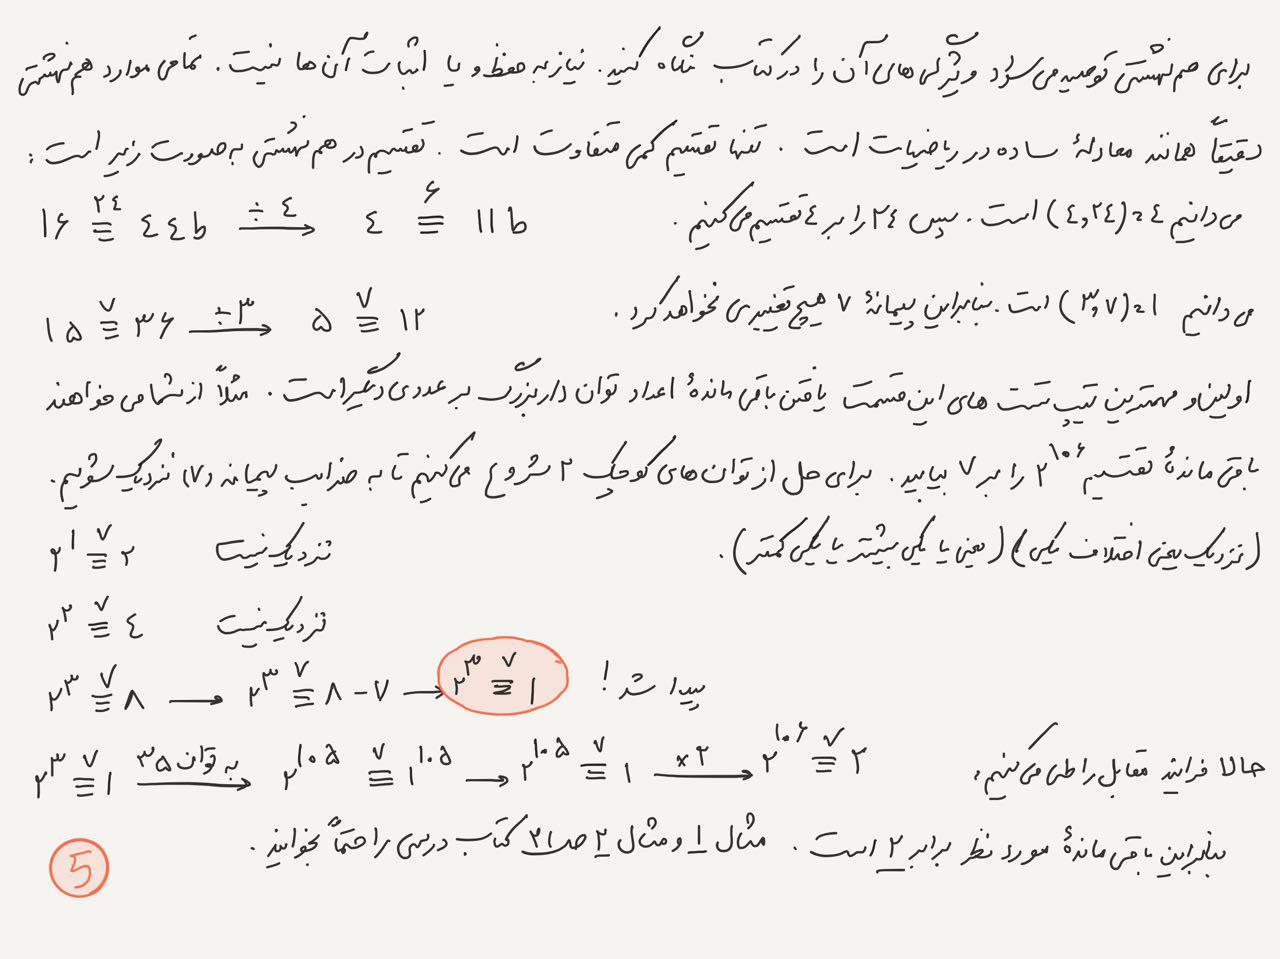 برای هم‌نهشتی توصیه می‌شود ویژگی‌های آن را در کتاب نگاه کنید. نیاز به حفظ و یا اثبات آن‌ها نیست. تمامی موارد هم‌نهشتی
دقیقاً همانند معادلهٔ ساده در ریاضیات است. تنها تقسیم کمی متفاوت است. تقسیم در هم‌نهشتی به صورت زیر است:
می‌دانیم (٤,٢٤)=٤ است. پس ٢٤ را بر ٤ تقسیم می‌کنیم.
١۶ ≡^{٢٤} ٤٤b —÷٤→ ٤ ≡^{۶} ١١b
می‌دانیم (٣,٧)=١ است. بنابراین پیمانهٔ ٧ هیچ تغییری نخواهد کرد.
١۵ ≡^{٧} ٣۶ —÷٣→ ۵ ≡^{٧} ١٢
اولین و مهمترین تیپ تست های این قسمت یافتن باقی ماندهٔ اعداد توان دار بزرگ بر عددی دیگر است. مثلاً از شما می خواهند
باقی ماندهٔ تقسیم ٢^{١٠۶} را بر ٧ بیابید. برای حل از توان‌های کوچک ٢ شروع می‌کنیم تا به ضرایب پیمانه (٧) نزدیک شویم.
(نزدیک یعنی اختلاف یکی!) (یعنی یا یکی بیشتر یا یکی کمتر).
٢^١ ≡^{٧} ٢ نزدیک نیست
٢^٢ ≡^{٧} ٤ نزدیک نیست
٢^٣ ≡^{٧} ٨ → ٢^٣ ≡^{٧} ٨ - ٧ → ٢^٣ ≡^{٧} ١ پیدا شد!
حالا فرایند مقابل را طی می‌کنیم:
٢^٣ ≡^{٧} ١ —به توان ٣۵→ ٢^{١٠۵} ≡^{٧} ١^{١٠۵} → ٢^{١٠۵} ≡^{٧} ١ —×٢→ ٢^{١٠۶} ≡^{٧} ٢
بنابراین باقی ماندهٔ مورد نظر برابر ٢ است. مثال ١ و مثال ٢ ص ٢١ کتاب درسی را حتماً بخوانید.
5